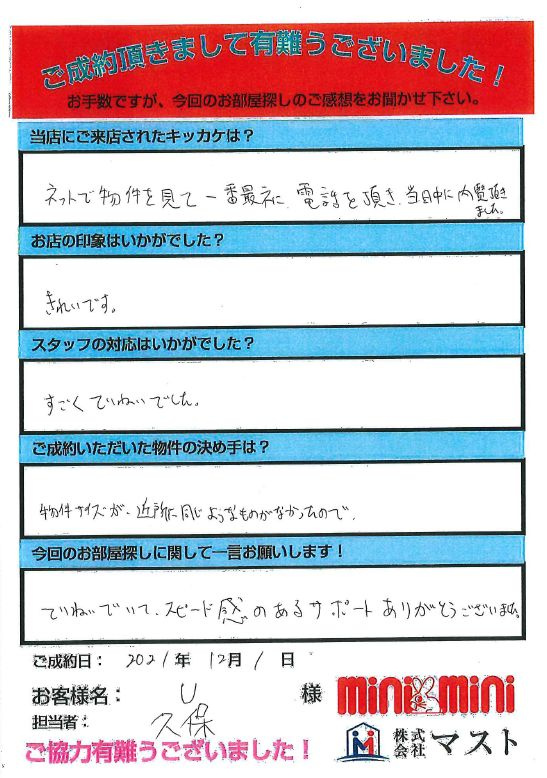 ご成約頂きまして有難うございました！
お手数ですが、今回のお部屋探しのご感想をお聞かせ下さい。
当店にご来店されたキッカケは？
ネットで物件を見て一番最初に電話を頂き、当日中に内覧頂き
ました。
お店の印象はいかがでした？
きれいです。
スタッフの対応はいかがでした？
すごくていねいでした。
ご成約いただいた物件の決め手は？
物件サイズが、近所に同じようなものがなかったので、
今回のお部屋探しに関して一言お願いします！
ていねいでいて、スピード感のあるサポートありがとうございました。
ご成約日： 2021年 12月 1 日
お客様名： U 様
mini mini
担当者： 久保
株式会社 マスト
ご協力有難うございました！